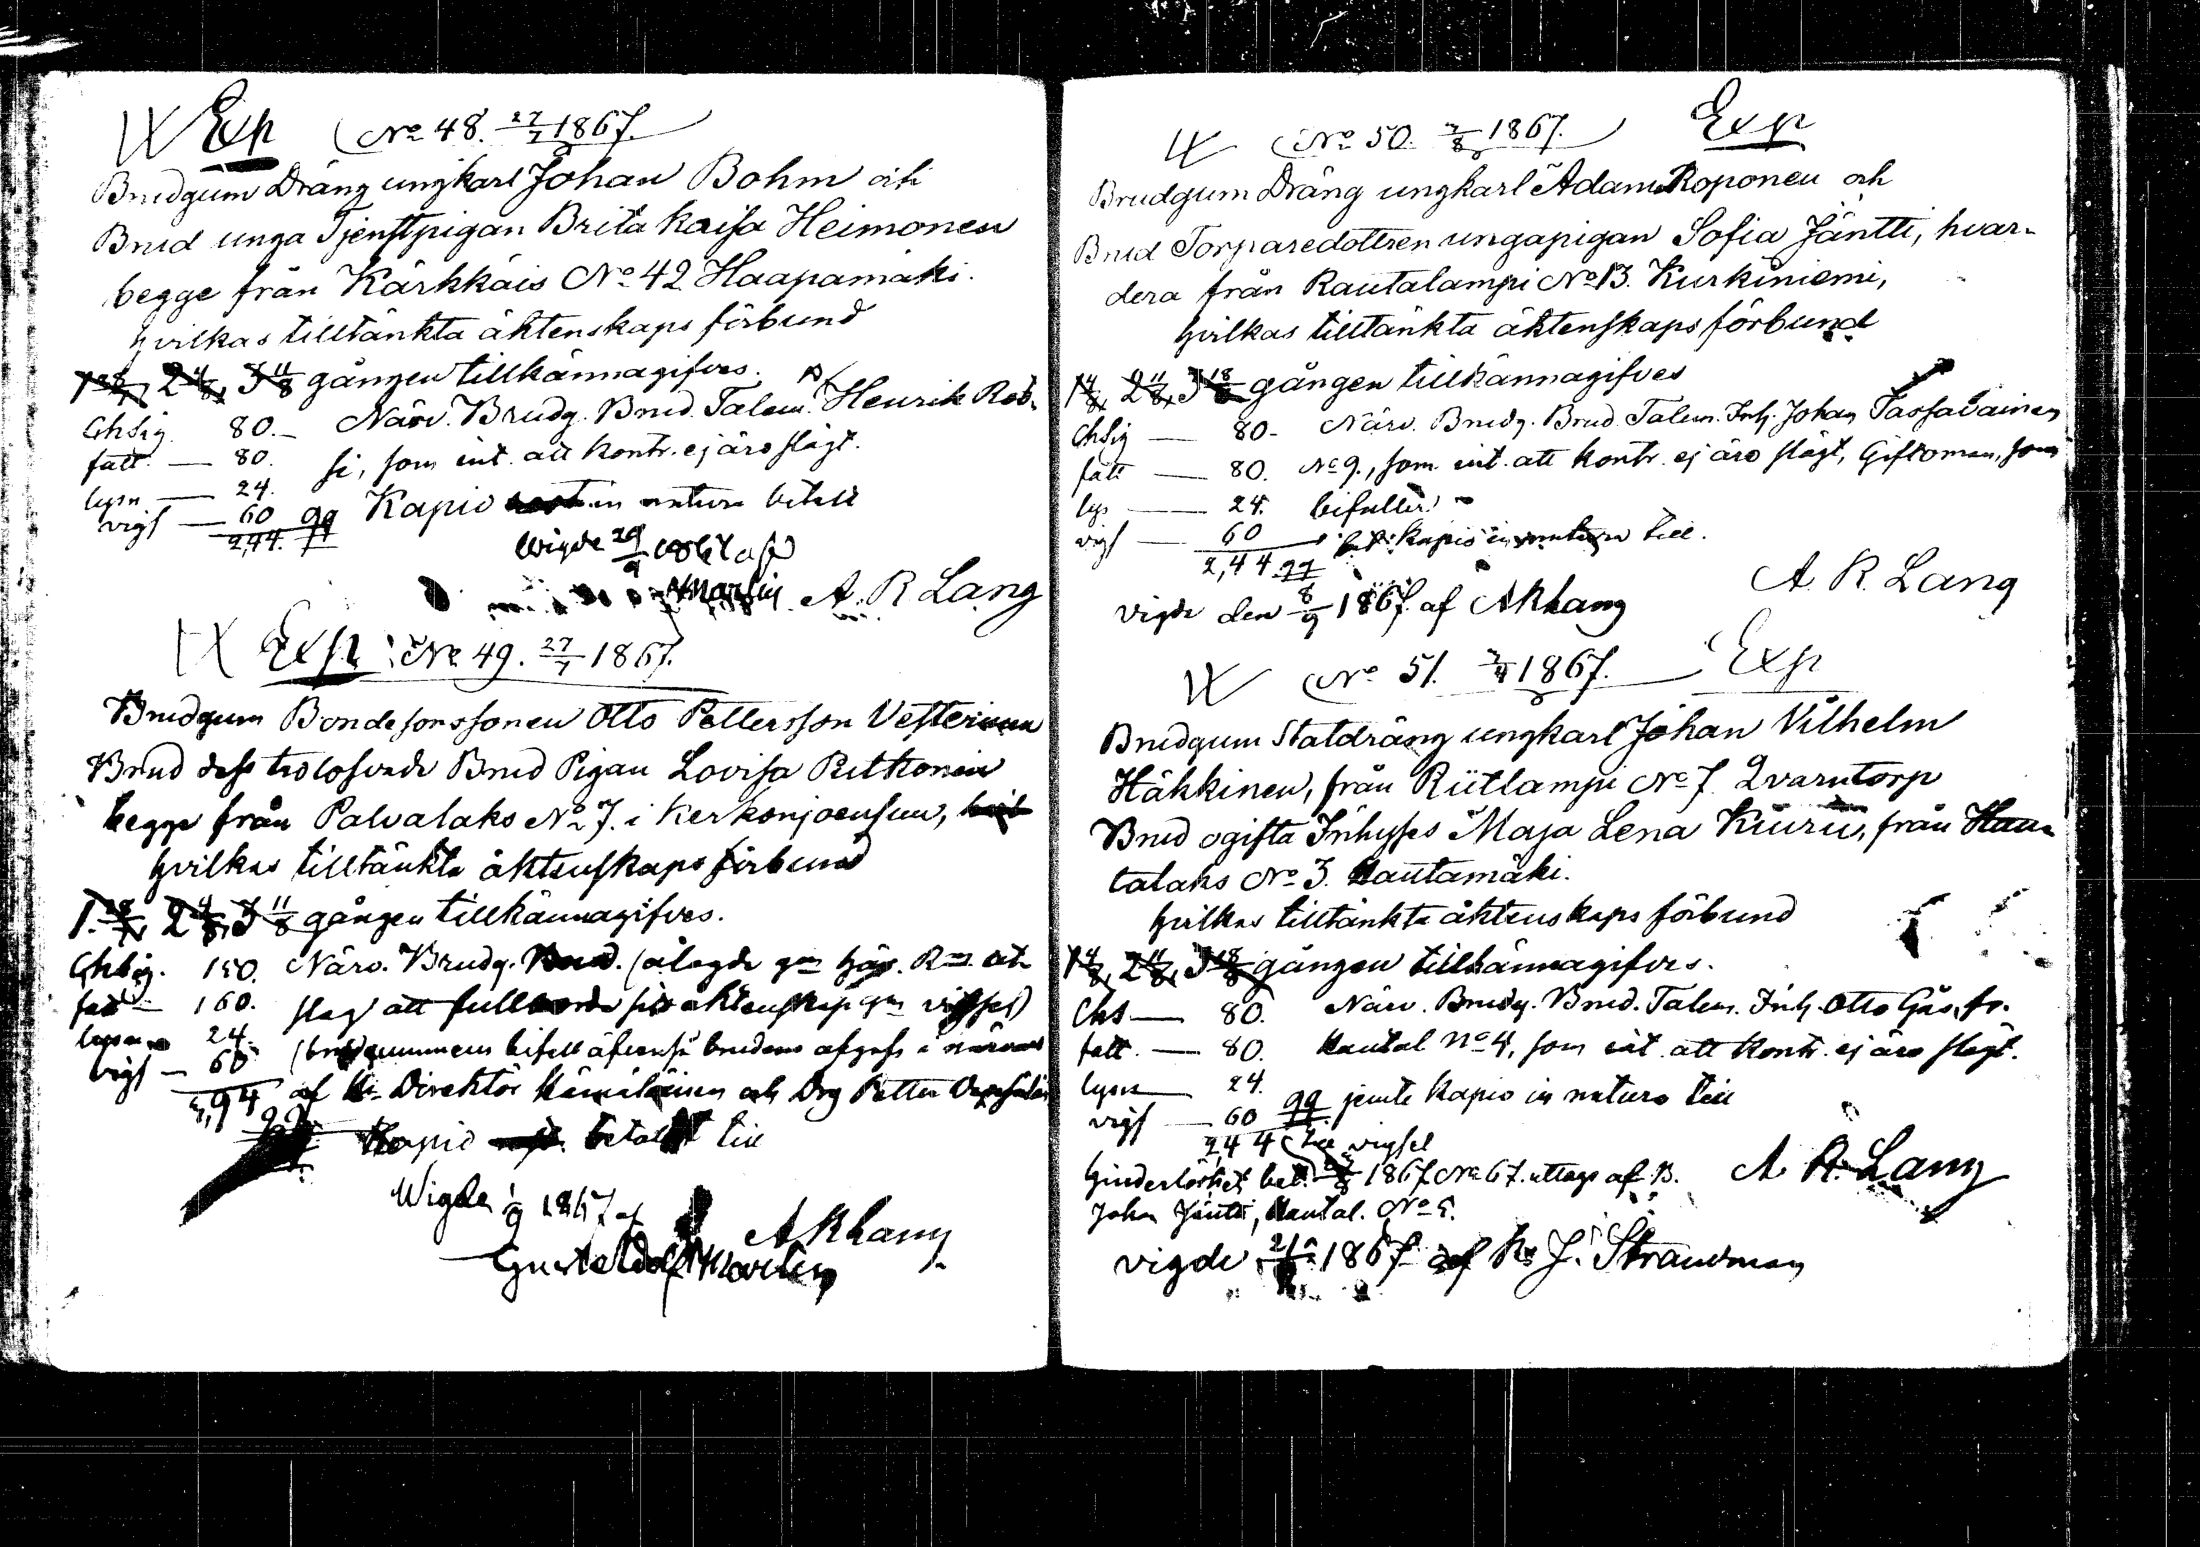 Exp No 48. 27/7 1867.
Brudgum Dräng ungkarl Johan Bohm och
Brud unga Tjenstpigan Brita Kaisa Heimonen
begge från Kärkkäis No 42 Haapamäki.
hvilkas tilltänkta äktenskaps förbund
1 28/7, 2 4/8, 3 11/8 gången tillkännagifves.
Chsig. 80.- Närv. Brudg. Brud. Talem. Henrik Rob-
fatt. — 80. si, som int. att kontr. ej äro slägt.
lysn — 24.
vigs — 60 Kapio in natura betalt
2,44.
Wigde 29/9 1867 af
Martin A. R Lang
Exp No 49. 27/7 1867.
Brudgum Bondesonssonen Otto Pettersson Vesterinen
Brud dess trolofvade Brud Pigan Lovisa Pitkonen
begge från Palvalaks No 7. i Kerkonjoensuu,
hvilkas tilltänkta äktenskaps förbund
1. 28/7, 2 4/8, 3 11/8 gången tillkännagifves.
Chsig. 150. Närv. Brudg. (ålagde
fatt — 160. slag att äktenskap
lysn 24.
vigs — 60 bifall äfvenså brudens afgafs i
af Direktör och Drg Petter
Kapio betalt till
Wigde 1/9 1867 af
A R Lang
Gustaf Adolf Martin
No 50. 3/8 1867. Exp
Brudgum Dräng ungkarl Adam Roponen och
Brud Torparedottren unga pigan Sofia Jäntti, hvar-
dera från Rautalampi No 13. Kurkiniemi,
hvilkas tilltänkta äktenskaps förbund
1 4/8, 2 11/8, 3 18/8 gången tillkännagifves
Chsig — 80.- Närv. Brudg. Brud. Talem. Inh. Johan Tassavainen
fatt — 80. No 9., som int. att kontr. ej äro slägt, Giftoman, som
lys — 24. bifaller.
vigs — 60 kapio in natura till.
2,44
A. R. Lang
vigde den 8/9 1867. af A R Lang
No 51. 3/8 1867. Exp
Brudgum Statdräng ungkarl Johan Vilhelm
Häkkinen, från Riitlampi No 7. Qvarntorp
Brud ogifta Inhyses Maja Lena Kiuru, från Hau-
talaks No 3. Hautamäki.
hvilkas tilltänkta äktenskaps förbund
1 4/8, 2 11/8, 3 18/8 gången tillkännagifves.
Chs — 80. Närv. Brudg. Brud. Talem. Inh. Otto Gås, fr.
fatt. — 80. Hautal No 4, som int. att kontr. ej äro slägt.
lysn — 24.
vigs — 60 jemte Kapio in natura till
2,44 till vigsel
hinderlöshet bet. 1867 No 67. uttogs af B. A R. Lang
Johan Jäntti, Hautal. No 5.
vigde 1867 af J. Strandman